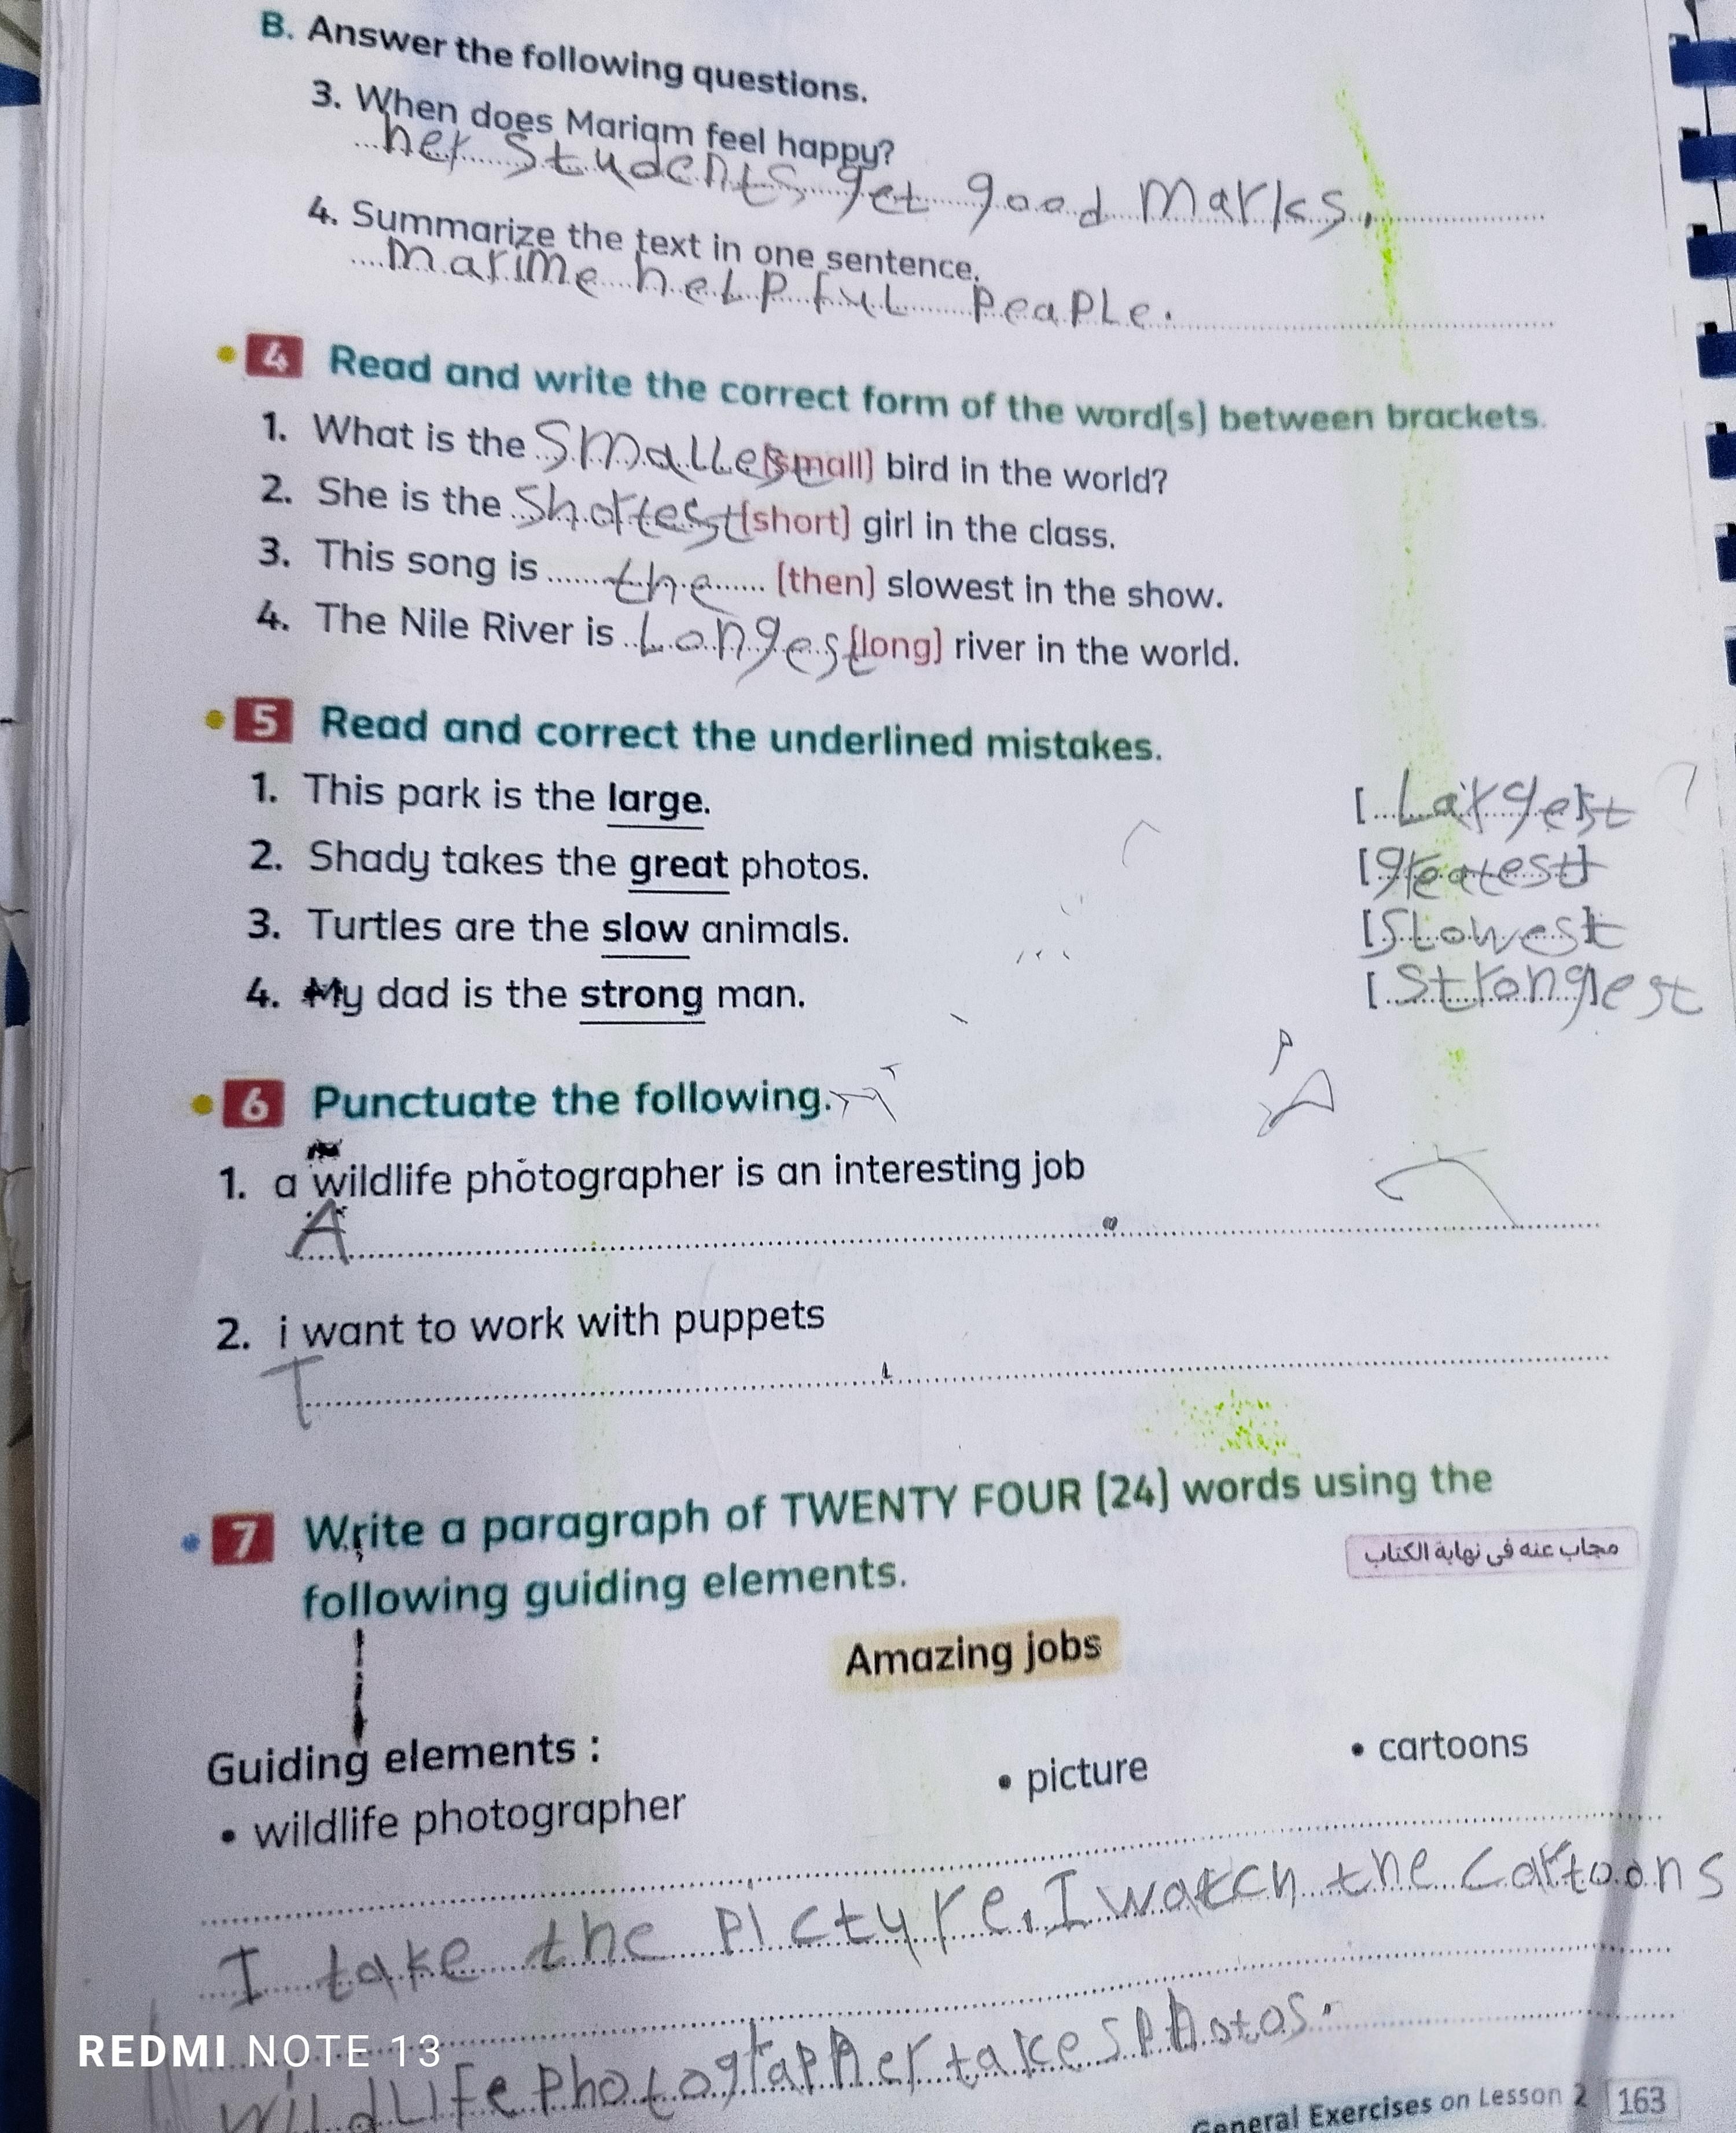 B. Answer the following questions.
3. When does Mariam feel happy?
her students get good marks.
4. Summarize the text in one sentence.
marime helpful peaple.
4 Read and write the correct form of the word(s) between brackets.
1. What is the smallest (small) bird in the world?
2. She is the shortest (short) girl in the class.
3. This song is the (then) slowest in the show.
4. The Nile River is Longest (long) river in the world.
5 Read and correct the underlined mistakes.
1. This park is the large. [Largest]
2. Shady takes the great photos. [greatest]
3. Turtles are the slow animals. [Slowest]
4. My dad is the strong man. [Strongest]
6 Punctuate the following.
1. a wildlife photographer is an interesting job
A .
2. i want to work with puppets
I .
7 Write a paragraph of TWENTY FOUR (24) words using the
following guiding elements.
مجاب عنه في نهاية الكتاب
Amazing jobs
Guiding elements :
• wildlife photographer • picture • cartoons
I take the picture. I watch the cartoons
wildlife photographer takes photos.
REDMI NOTE 13
General Exercises on Lesson 2 163